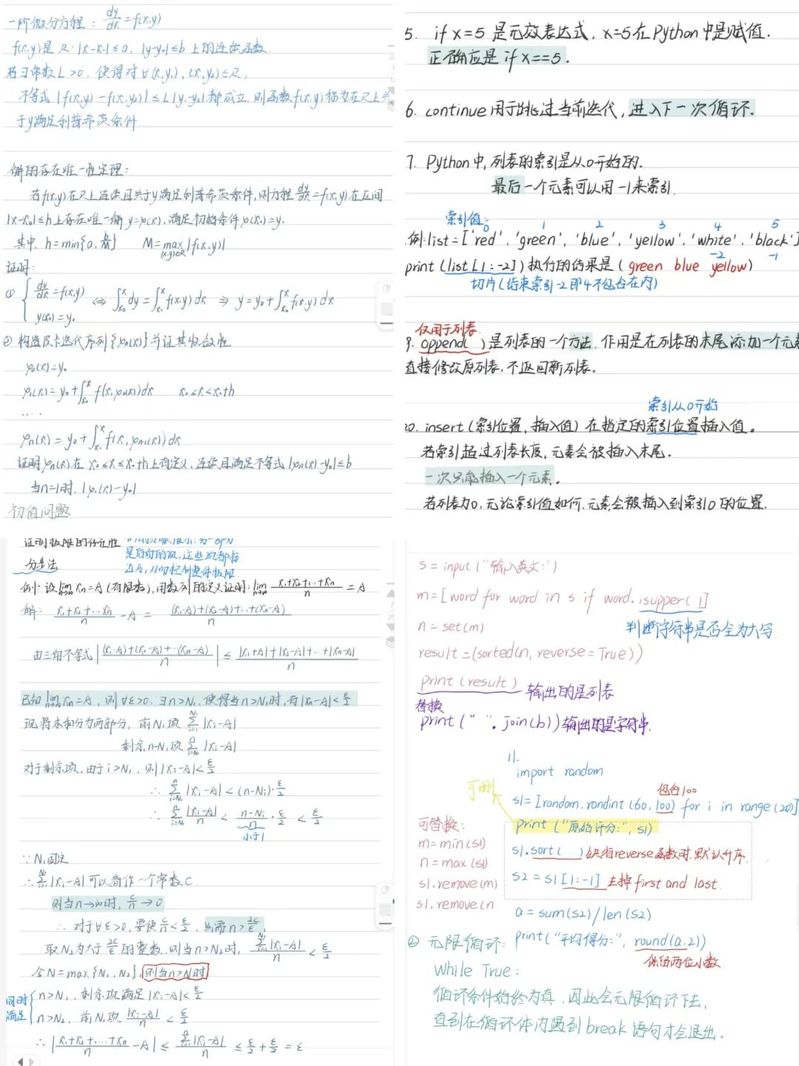 一阶微分方程: dy/dx = f(x,y)
f(x,y)是 R: |x-x₀|≤a, |y-y₀|≤b 上的连续函数
若∃常数L>0, 使得对∀(x,y₁), (x,y₂)∈R,
不等式 |f(x,y₁)-f(x,y₂)|≤L|y₁-y₂|都成立, 则函数f(x,y)称为在R上关
于y满足利普希茨条件
解的存在唯一性定理:
若f(x,y)在R上连续且关于y满足利普希茨条件, 则方程dy/dx=f(x,y)在区间
|x-x₀|≤h上存在唯一解 y=φ(x), 满足初始条件φ(x₀)=y₀
其中 h=min{a, b/M} M=max|f(x,y)|
(x,y)∈R
证明:
① { dy/dx=f(x,y) ⇔ ∫dy=∫f(x,y)dx ⇒ y=y₀+∫f(x,y)dx
y(x₀)=y₀
② 构造皮卡迭代序列{φₙ(x)}并证其收敛性
φ₀(x)=y₀
φ₁(x)=y₀+∫f(x,φ₀(x))dx x₀≤x≤x₀+h
····
φₙ(x)=y₀+∫f(x,φₙ₋₁(x))dx
证明φₙ(x)在 x₀≤x≤x₀+h上有定义、连续且满足不等式|φₙ(x)-y₀|≤b
当n=1时, |φ₁(x)-y₀|
初值问题
5. if x=5 是无效表达式, x=5在Python中是赋值.
正确应是 if x==5.
6. continue用于跳过当前迭代, 进入下一次循环.
7. Python中,列表的索引是从0开始的.
最后一个元素可以用-1来索引.
索引值: 0 1 2 3 4 5
例:list=['red','green','blue','yellow','white','black']
-2 -1
print(list[1:-2])执行的结果是(green blue yellow)
切片(结束索引-2即4不包含在内)
仅用于列表
9. append( )是列表的一个方法. 作用是在列表的末尾添加一个元素
直接修改原列表,不返回新列表.
索引从0开始
20. insert(索引位置,插入值)在指定的索引位置插入值。
若索引超过列表长度,元素会被插入末尾.
一次只能插入一个元素。
若列表为0,无论索引值如何,元素会被插入到索引0的位置.
证明极限的存在性
分步法
例: 设lim xₙ=A(有限数), 用数列的定义证明: lim (x₁+x₂+…+xₙ)/n = A
解: (x₁+x₂+…xₙ)/n -A = ((x₁-A)+(x₂-A)+…+(xₙ-A))/n
由三角不等式|((x₁-A)+(x₂-A)+…(xₙ-A))/n| ≤ (|x₁-A|+|x₂-A|+…+|xₙ-A|)/n
已知lim xₙ=A, 则∀ε>0, ∃n>N₁, 使得当n>N₁时,有|xₙ-A|<ε/2
现将求和分为两部分, 前N₁项 Σ|xᵢ-A|
剩余n-N₁项 Σ|xᵢ-A|
对于剩余项,由于i>N₁, 则|xᵢ-A|<ε/2
∴ Σ|xᵢ-A|<(n-N₁)·ε/2
∴ Σ|xᵢ-A|/n < (n-N₁)/n · ε/2 < ε/2
小于1
∵ N₁固定
∴ Σ|xᵢ-A|可以看作一个常数C
则当n→∞时, C/n→0
∴ 对于∀ε>0, 要使C/n<ε/2, 只需n>2C/ε
取N₂为大于2C/ε的整数, 则当n>N₂时, Σ|xᵢ-A|/n < ε/2
令N=max{N₁,N₂}, 则当n>N时
同时满足 { n>N₁, 剩余项满足|xᵢ-A|<ε/2
n>N₂, 前N₁项 Σ|xᵢ-A|/n < ε/2
∴ |(x₁+x₂+…+xₙ)/n -A| ≤ Σ|xᵢ-A|/n ≤ ε/2+ε/2=ε
s=input("输入英文:")
m=[word for word in s if word.isupper( )]
n=set(m) 判断字符串是否全为大写
result=(sorted(n,reverse=True))
print(result) 输出的是列表
替换
print(" ".join(b))输出的是字符串.
11.
import random
包含100
可删
s1=[random.randint(60,100) for i in range(20)]
print("原始评分:", s1)
s1.sort( ) 缺省reverse函数时,默认升序.
s2=s1[1:-1] 去掉first and last
a=sum(s2)/len(s2)
print("平均得分:", round(a,2))
保留两位小数
可替换:
m=min(s1)
n=max(s1)
s1.remove(m)
s1.remove(n
② 无限循环:
While True:
循环条件始终为真, 因此会无限循环下去,
直到在循环体内遇到break语句才会退出.